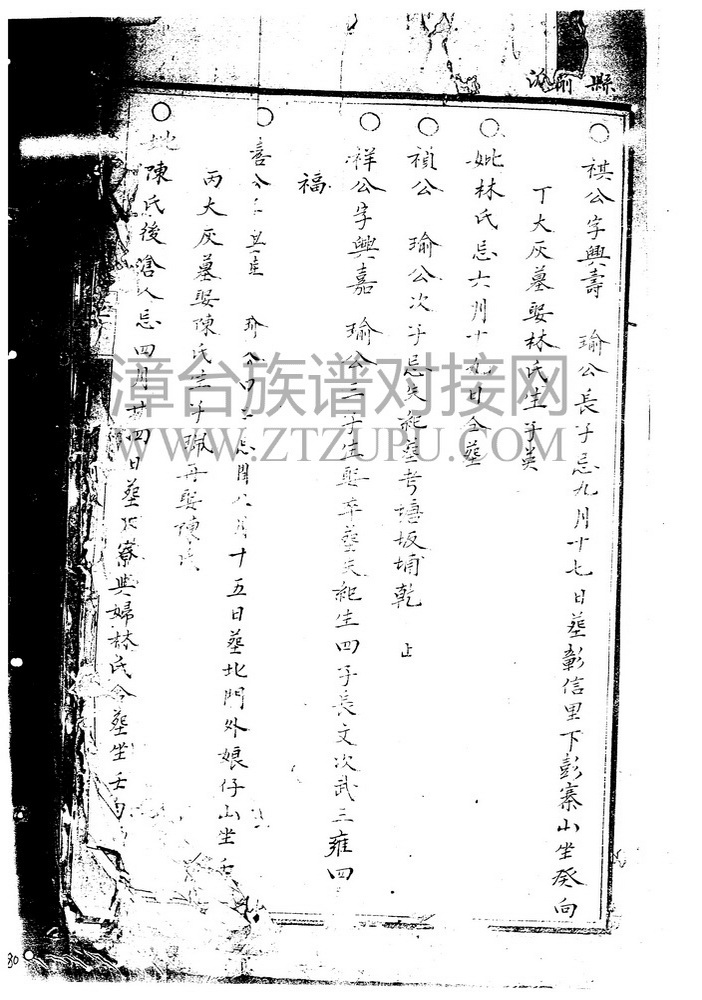 縣前派
祺公字興壽 瑜公長子忌九月十七日葬彰信里下彭寨山坐癸向
丁大灰墓娶林氏生子英
妣林氏忌六月十九日合葬
禎公 瑜公次子忌失紀墓考塘坂埔乾 止
祥公字興嘉 瑜公三子生娶卒葬失紀生四子長文次武三雍四
福
忌閏八月十五日葬北門外娘仔山坐壬
丙大灰墓娶陳氏生子珮再娶陳氏
妣陳氏後滄人忌四月廿四日葬 寮與婦林氏合葬坐壬向
漳台族谱对接网
WWW.ZTZUPU.COM
80